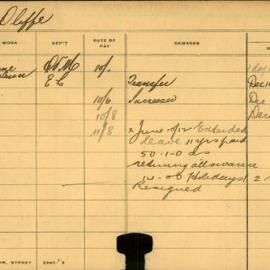 Oliffe
WORK DEP'T RATE OF PAY REMARKS
10/-
E L Transfer Dec
10/6 Increase Dec
10/8
11/8 x June 9/12 Extended
leave 11 yrs paid
50-1-0 as
retiring allowance
Holidays 2
Resigned
SYDNEY